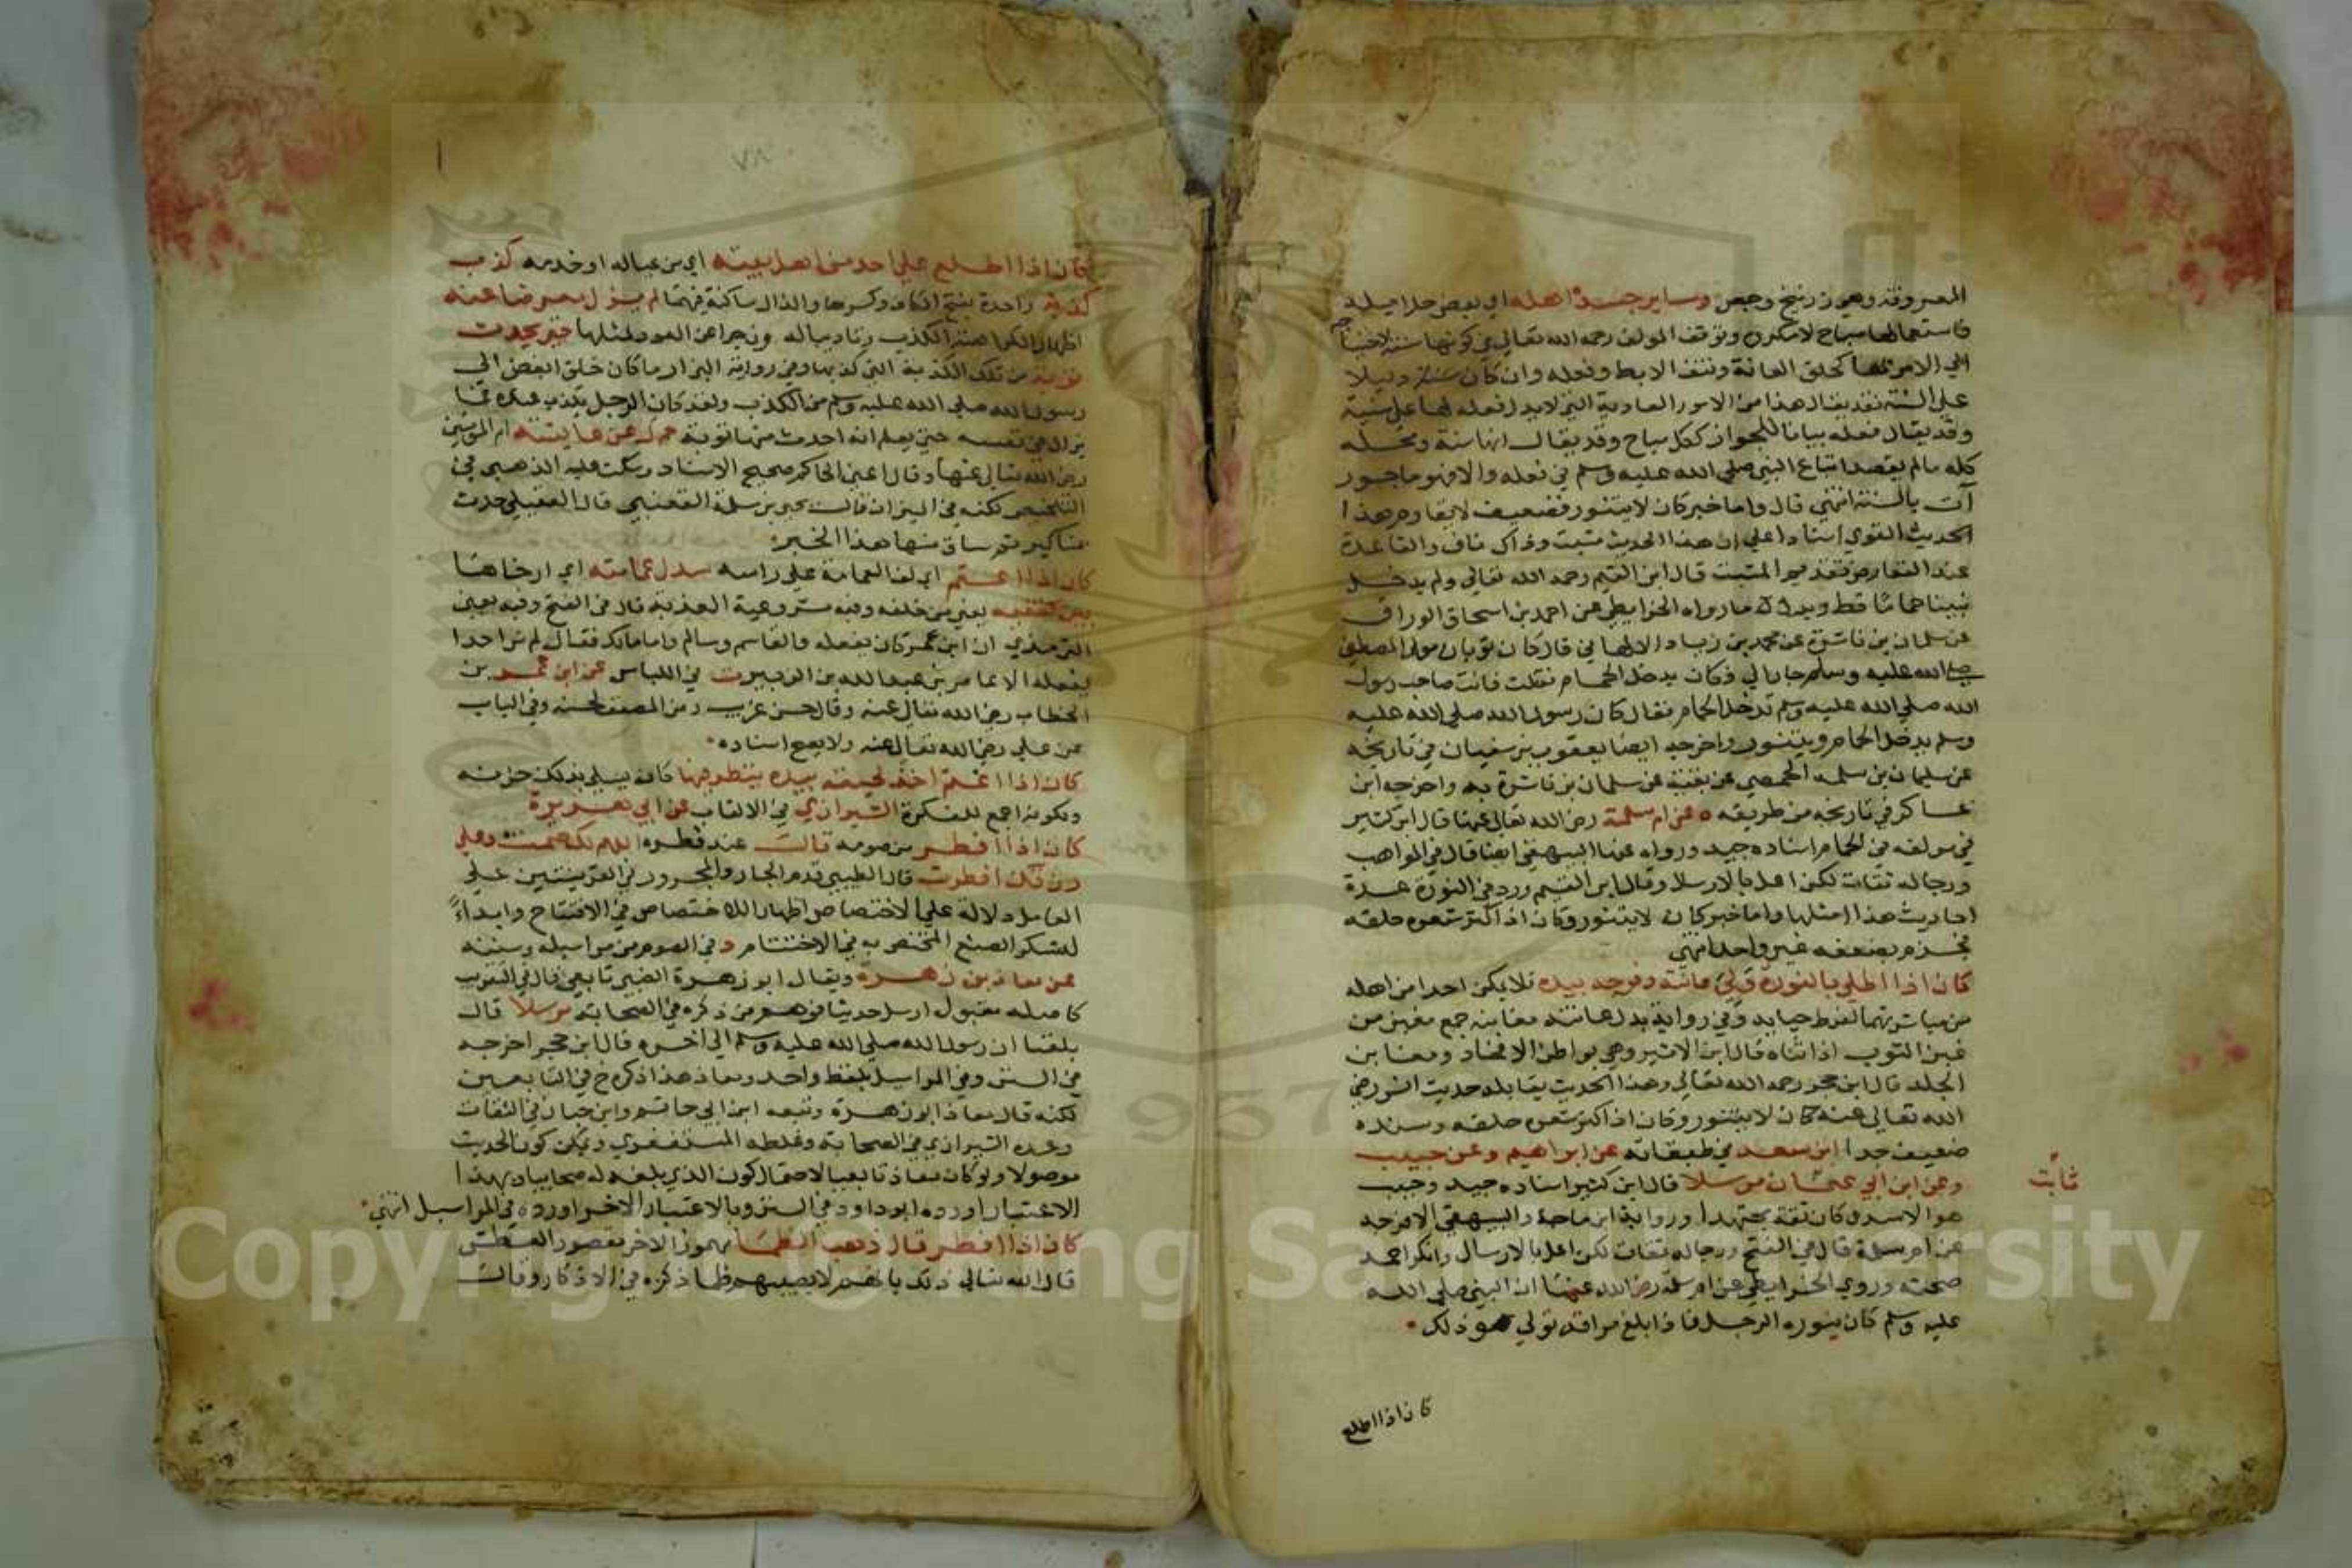 المعروفة وهي زرنيخ وجص وسائر جسده اهله اي بعض حلائله
فاستعمالها مباح لامكروه وتوقف المولف رحمه الله تعالى في كونها سنة لاحتياج
الى الامر بها كحلق العانة ونتف الابط وفعله وان كان دليلا
على السنة فقد يقال هذا من الامور العادية التي لا يدل فعله لها على سنية
وقد يقال فعله بيانا للجواز ككل مباح وقد يقال انها سنة ومحله
كله ما لم يقصد اتباع النبي صلى الله عليه وسلم في فعله والا فهو ماجور
آت بالسنة انتهى قال واما خبر كان لا يتنور فضعيف لا يقاوم هذا
الحديث القوي اسنادا على ان هذا الحديث مثبت وذاك ناف والقاعدة
عند التعارض تقديم المثبت قال ابن القيم رحمه الله تعالى ولم يدخل
نبينا حماما قط ويرده ما رواه الخرايطي عن احمد بن اسحاق الوراق
عن سلمان بن ناشرة عن محمد بن زياد الالهاني قال كان ثوبان مولى المصطفى
صلى الله عليه وسلم جارا لي وكان يدخل الحمام فقلت فانت صاحب رسول
الله صلى الله عليه وسلم تدخل الحمام فقال كان رسول الله صلى الله عليه
وسلم يدخل الحمام ويتنور واخرجه ايضا يعقوب بن سفيان في تاريخه
عن سليمان بن سلمه الحمصي عن بقية عن سلمان بن ناشرة به واخرجه ابن
عساكر في تاريخه من طريقه ه عن ام سلمة رضي الله تعالى عنها قال ابن كثير
في مولفه في الحمام اسناده جيد ورواه عنها البيهقي ايضا قال في المواهب
ورجاله ثقات لكن اعل بالارسال وقال ابن القيم ورد في النورة عدة
احاديث هذا امثلها واما خبر كان لا يتنور وكان اذا كثر شعره حلقه
فجزم بضعفه غير واحد انتهى
كان اذا اطلى بالنورة ولي عانته وفرجه بيده فلا يمكن احدا من اهله
من مباشرتهما لفرط حيايه وفي رواية بدل عانته مغابنه جمع مغبن من
غبن الثوب اذا ثناه قال ابن الاثير وهي بواطن الافخاذ ومغابن
الجلد قال ابن حجر رحمه الله تعالى وهذا الحديث يقابله حديث انس رضي
الله تعالى عنه كان لا يتنور وكان اذا كثر شعره حلقه وسنده
ضعيف جدا ابن سعد في طبقاته عن ابراهيم وعن حبيب
ثابت
وعن ابن ابي عثمان مرسلا قال ابن كثير اسناده جيد وحبيب
هو الاسدي كان ثقة مجتهدا ورواية ابن ماجة والبيهقي الا فرجه
عن ام سلمة قال في الفتح ورجاله ثقات لكن اعل بالارسال وانكر احمد
صحته وروى الخرايطي عن ام سلمة رضي الله عنها ان النبي صلى الله
عليه وسلم كان ينوره الرجل فاذا بلغ مراقه تولى هو ذلك
كان اذا اطلع
٧٨
كان اذا اطلع على احد من اهل بيته اي من عياله او خدمه كذب
كذبة واحدة بفتح الكاف وكسرها والذال ساكنة فيهما لم يزل معرضا عنه
اظهارا لكراهة الكذب وتاديبا له وزجرا عن العود لمثلها حتى يحدث
توبة من تلك الكذبة التي كذبها وفي رواية البزار ما كان خلق ابغض الى
رسول الله صلى الله عليه وسلم من الكذب ولقد كان الرجل يكذب عنده فما
يزال في نفسه حتى يعلم انه احدث منها توبة حم ك عن عايشة ام المومنين
رضي الله تعالى عنها وقال اعني الحاكم صحيح الاسناد وسكت عليه الذهبي في
التلخيص لكنه في الميزان قال يحيى بن سلمة القعنبي قال العقيلي حدث
بمناكير ثم ساق منها هذا الخبر
كان اذا اعتم اي لف العمامة على راسه سدل عمامته اي ارخاها
بين كتفيه يعني من خلفه وفيه مشروعية العذبة قال في الفتح وفيه يعني
الترمذي ان ابن عمر كان يفعله والقاسم وسالم واما مالك فقال لم نر احدا
يفعله الا عامر بن عبد الله بن الزبير ت في اللباس عن ابن عمر بن
الخطاب رضي الله تعالى عنه وقال حسن غريب رمز المصنف لحسنه وفي الباب
عن علي رضي الله تعالى عنه ولا يصح اسناده
كان اذا اغتم اخذ لحيته بيده ينظر فيها كان يسلي بذلك حزنه
ويكون اجمع للفكرة الشيرازي في الالقاب عن ابي هريرة
كان اذا افطر من صومه قال عند فطره اللهم لك صمت وعلى
رزقك افطرت قال الطيبي قدم الجار والمجرور في القرينتين على
العامل دلالة على الاختصاص اظهارا للاختصاص في الافتتاح وابداءً
لشكر الصنع المختص به في الاختتام د في الصوم من مراسيله وسننه
عن معاذ بن زهرة ويقال ابو زهرة الضبي تابعي قال في التقريب
كاصله مقبول ارسل حديثا فوهم من ذكره في الصحابة مرسلا قال
بلغنا ان رسول الله صلى الله عليه وسلم الى اخره قال ابن حجر اخرجه
في السنن وفي المراسيل بلفظ واحد ومعاذ هذا ذكره خ في التابعين
لكنه قال معاذ ابو زهرة وتبعه ابن ابي حاتم وابن حبان في الثقات
وعده الشيرازي في الصحابة وغلطه المستغفري ويمكن كون الحديث
موصولا ولو كان معاذ تابعيا لاحتمال كون الذي بلغه له صحابيا وبهذا
الاعتبار اورده ابو داود في السنن وبالاعتبار الاخر اورده في المراسيل انتهى
كان اذا افطر قال ذهب الظما مهموز الاخر مقصور العطش
قال الله تعالى ذلك بانهم لا يصيبهم ظما ذكره في الاذكار وقال